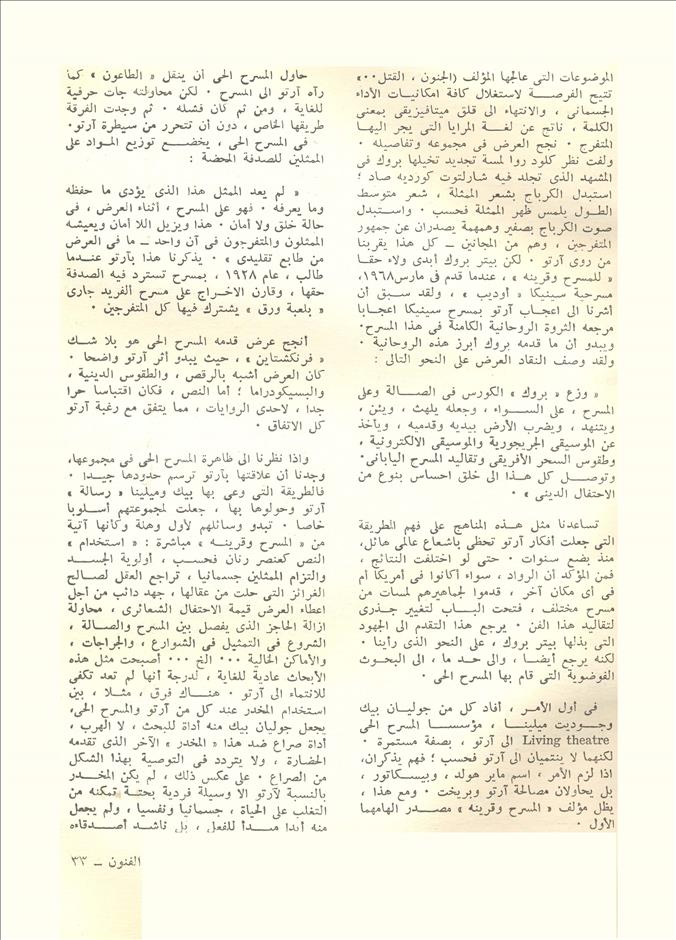 الموضوعات التى عالجها المؤلف (الجنون ، القتل٠٠»
تتيح الفرصة لاستغلال كافة امكانيات الأداء
الجسمانى ، والانتهاء الى قلق ميتافيزيقى بمعنى
الكلمة ، ناتج عن لغة المرايا التى يجر اليها
المتفرج ٠ نجح العرض فى مجموعه وتفاصيله ٠
ولفت نظر كلود روا لمسة تجديد تخيلها بروك فى
المشهد الذى تجلد فيه شارلتوت كورديه صاد ؛
استبدل الكرباج بشعر الممثلة ، شعر متوسط
الطول يلمس ظهر الممثلة فحسب ٠ واستبدل
صوت الكرباج بصفير وهمهمة يصدران عن جمهور
المتفرجين ، وهم من المجانين ــ كل هذا يقربنا
من روى آرتو ٠ لكن بيتر بروك أبدى ولاء حقا
« للمسرح وقرينه » ، عندما قدم فى مارس١٩٦٨،
مسرحية سينيكا « أوديب » ، ولقد سبق أن
أشرنا الى اعجاب آرتو بمسرح سينيكا اعجابا
مرجعه الثروة الروحانية الكامنة فى هذا المسرح٠
ويبدو أن ما قدمه بروك أبرز هذه الروحانية ٠
ولقد وصف النقاد العرض على النحو التالى :
« وزع « بروك » الكورس فى الصــالة وعلى
المسرح ، على الســواء ، وجعله يلهث ، ويئن ،
ويتنهد ، ويضرب الأرض بيديه وقدميه ، ويأخذ
عن الموسيقى الجريجورية والموسيقى الالكترونية ،
وطقوس السحر الأفريقى وتقاليد المسرح اليابانى٠
وتوصــل كل هــذا الى خلق احساس بنوع من
الاحتفال الدينى » ٠
تساعدنا مثل هــذه المناهج على فهم الطريقة
التى جعلت أفكار آرتو تحظى باشعاع عالمى هائل،
منذ بضع سنوات ٠ حتى لو اختلفت النتائج ،
فمن المؤكد أن الرواد ، سواء أكانوا فى أمريكا أم
فى أى مكان آخر ، قدموا لجماهيرهم لمسات من
مسرح مختلف ، فتحت البــاب لتغيير جــذرى
لتقاليد هذا الفن ٠ يرجع هذا التقدم الى الجهود
التى بذلها بيتر بروك ، على النحو الذى رأينا ٠
لكنه يرجع أيضــا ، والى حــد ما ، الى البحوث
الفوضوية التى قام بها المسرح الحى ٠
فى أول الأمــر ، أفاد كل من جوليــان بيك
وجــوديت ميلينــا ، مؤسســا المســرح الحى
Living theatre الى آرتو ، بصفة مستمرة ٠
لكنهما لا ينتميان الى آرتو فحسب ؛ فهم يذكران،
اذا لزم الأمر ، اسم ماير هولد ، وبيسكاتور ،
بل يحاولان مصالحة آرتو وبريخت ٠ ومع هذا ،
يظل مؤلف « المسرح وقرينه » مصــدر الهامهما
الأول ٠
حاول المسرح الحى أن ينقل « الطاعون » كما
رآه آرتو الى المسرح ٠ لكن محاولته جات حرفية
للغاية ، ومن ثم كان فشله ٠ ثم وجدت الفرقة
طريقها الخاص ، دون أن تتحرر من سيطرة آرتو٠
فى المسرح الحى ، يخضــع توزيع المـواد على
الممثلين للصدفة المحضة :
« لم يعد الممثل هذا الذى يؤدى ما حفظه
وما يعرفه ٠ فهو على المسرح ، أثناء العرض ، فى
حالة خلق ولا أمان ٠ هذا ويزيل اللا أمان ويعيشه
الممثلون والمتفرجون فى آن واحد ــ ما فى العرض
من طابع تقليدى » ٠ يذكرنا هذا بآرتو عنــدما
طالب ، عام ١٩٢٨ ، بمسرح تسترد فيه الصدفة
حقها ، وقارن الاخــراج على مسرح الفريد جارى
« بلعبة ورق » يشترك فيها كل المتفرجين ٠
أنجح عرض قدمه المسرح الحى هو بلا شــك
« فرنكشتاين » ، حيث يبدو أثر آرتو واضحا ٠
كان العرض أشبه بالرقص ، والطقوس الدينية ،
والبسيكودراما ؛ أما النص ، فكان اقتباسا حرا
جدا ، لاحدى الروايات ، مما يتفق مع رغبة آرتو
كل الاتفاق ٠
واذا نظرنا الى ظاهرة المسرح الحى فى مجموعها،
وجدنا أن علاقتها بآرتو ترسم حدودها جيــدا ٠
فالطريقة التى وعى بها بيك وميلينا « رسالة »
آرتو وحولوها بها ، جعلت لمجموعتهم أســلوبا
خاصا ٠ تبدو وسائلهم لأول وهلة وكأنها آتية
من « المسرح وقرينــه » مباشرة : « استخدام »
النص كعنصر رنان فحسب ، أولوية الجســد
والتزام الممثلين جسمانيا ، تراجع العقل لصــالح
الغرائز التى حلت من عقالها ، جهد دائب من أجل
اعطاء العرض قيمة الاحتفال الشعائرى ، محاولة
ازالة الحاجز الذى يفصل بين المسرح والصــالة ،
الشروع فى التمثيل فى الشوارع ، والجراجات ،
والأماكن الخالية ٠٠٠ الخ ٠٠٠ أصبحت مثل هذه
الأبحاث عادية للغاية ، لدرجة أنها لم تعد تكفى
للانتماء الى آرتو ٠ هنــاك فرق ، مثــلا ، بين
استخدام المخدر عند كل من آرتو والمسرح الحى،
يجعل جوليان بيك منه أداة للبحث ، لا الهرب ،
أداة صراع ضد هذا « المخدر » الآخر الذى تقدمه
الحضارة ، ولا يتردد فى التوصية بهذا الشكل
من الصراع ٠ على عكس ذلك ، لم يكن المخــدر
بالنسبة لآرتو الا وسيلة فردية بحتــة تمكنه من
التغلب على الحياة ، جسمانيا ونفسيا ، ولم يجعل
منه أبدا مبــدأ للفعل ، بل ناشــد أصدقاءه
الفنون ــ ٣٣